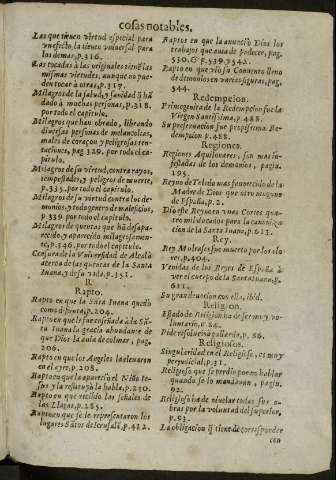 cosas notables.
Las que tienen virtud especial para
un efecto, la tienen vniuersal para
los demas, p.316.
Las tocadas à las originales tienẽ las
mismas virtudes, aunque no pue-
den tocar à otras, p.317.
Milagros de la salud, y sanidad q̃ hã
dado à muchas personas, p.318.
por todo el capitulo.
Milagros que han obrado, librando
diuersas personas de melancolias,
males de coraçon, y peligrosas ten-
taciones, pag 329. por todo el ca-
pitulo.
Milagros de su virtud, contra rayos,
tempestades, y peligros de muerte,
p.335. por todo el capitulo.
Milagros de su virtud contra los de-
monios, y todo genero de maleficios,
p. 339 por todo el capitulo.
Milagros de quentas que hã desapa-
recido, y aparecido milagrosamen-
te, p.346. por todo el capitulo.
Censura de la Vniuersidad de Alcalà
acerca de las quentas de la Santa
Iuana, y de su vida, p.351.
R
Rapto.
Rapto en que la Sãta Iuana quedò
como difunta, p.204.
Rapto en que la fue enseñada à la Sã-
ta Iuana la gracia abundante de
que Dios la auia de colmar, pag.
206.
Rapto en que los Angeles la eleuaron
en el ayre, p.208.
Rapto en que la apareciò el Niño Ie-
sus y la restituyò la habla, p.230.
Rapto en que recibiò las señales de
las Llagas, p.285.
Rapto en que se le representaron los
lugares Sãtos de Ierusalẽ, p.422.
Raptos en que la anunciò Dios los
trabajos que auia de padecer, pag.
530. & p.539. y 542.
Rapto en que viò su Conuento lleno
de demonios en varias figuras, pag.
544.
Redempcion.
Princegenita de la Redempcion fue la
Virgen Santissima, p.488.
Su preseruacion fue propissima Re-
dempcion. p.488.
Regiones.
Regiones Aquilonares, son mas in-
festadas de los demonios, pagin.
195.
Reyno de Toledo mas fauorecido de la
Madre de Dios que otro ninguno
de España, p.2.
Diòse Reyno en vnas Cortes quatro
mil ducados para la canoniza-
cion de la Santa Iuana, p.611.
Rey.
Rey Moloses fue muerto por los olo-
res, p.404.
Venidas de los Reyes de España à
ver el cuerpo de la Santa Iuana, p.
611.
Su gran deuocion con ella, ibid.
Religion.
Estado de Religion ha de ser muy vo-
luntario, p 84.
Pide resolucion gallarda, p. 86.
Religiosos.
Singularidad en el Religioso, es muy
perjudicial, p.31.
Religioso que se perdiò por no hablar
quando se lo mandaron, pagin.
92.
Religioso ha de niuelar todas sus o-
bras por la voluntad del superior,
p.93.
La obligacion q̃ tiene de corresponder
con